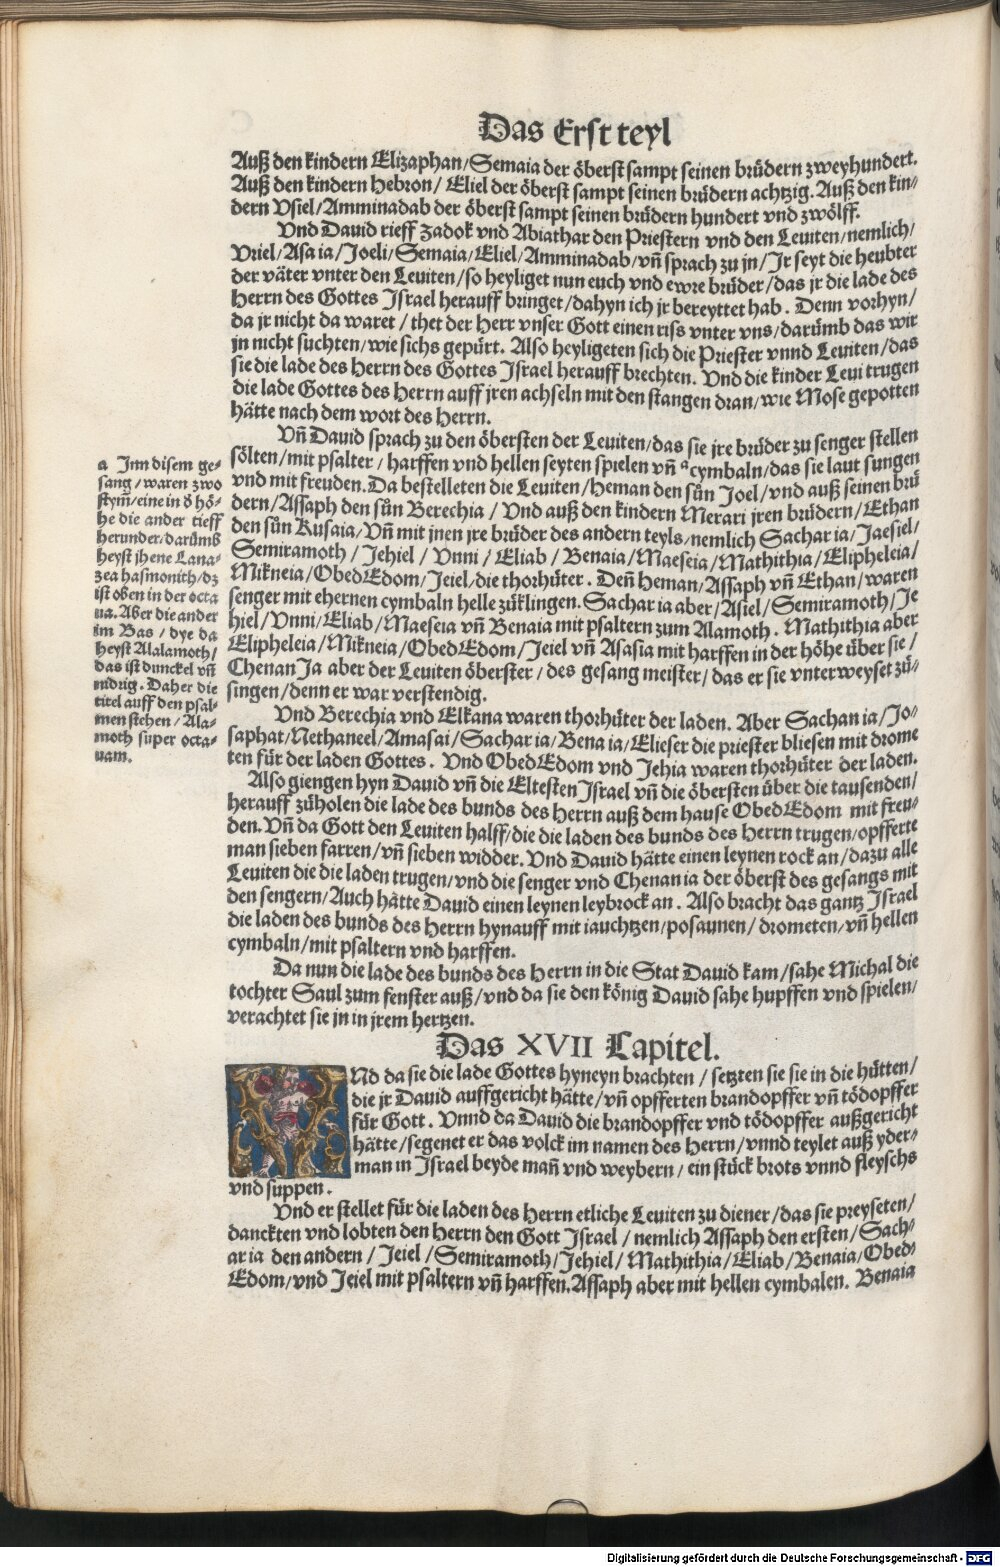 Das Erst teyl
Auß den kindern Elizaphan/Semaia der öberst sampt seinen brüdern zweyhundert.
Auß den kindern Hebron/ Eliel der öberst sampt seinen brüdern achtzig. Auß den kin/
dern Vsiel/Amminadab der öberst sampt seinen brüdern hundert vnd zwölff.
Vnd Dauid rieff Zadok vnd Abiathar den Priestern vnd den Leuiten/nemlich/
Vriel/Asa ia/Joeli/Semaia/Eliel/Amminadab/vñ sprach zu jn/Jr seyt die heubter
der väter vnter den Leuiten/so heyliget nun euch vnd ewre brüder/das jr die lade des
Herrn des Gottes Jsrael herauff bringet/dahyn ich jr bereyttet hab. Denn vorhyn/
da jr nicht da waret/thet der Herr vnser Gott einen riss vnter vns/darümb das wir
jn nicht suchten/wie sichs gepürt. Also heyligeten sich die Priester vnnd Leuiten/das
sie die lade des Herrn des Gottes Jsrael herauff brechten. Vnd die kinder Leui trugen
die lade Gottes des Herrn auff jren achseln mit den stangen dran/wie Mose gepotten
hätte nach dem wort des Herrn.
Vñ Dauid sprach zu den öbersten der Leuiten/das sie jre brüder zu senger stellen
sölten/mit psalter/harffen vnd hellen seyten spielen vñ a cymbaln/das sie laut sungen
vnd mit freuden. Da bestelleten die Leuiten/Heman den sün Joel/vnd auß seinen brü
dern/Assaph den sün Berechia/Vnd auß den kindern Merari jren brüdern/Ethan
den sün Kusaia/Vñ mit jnen jre brüder des andern teyls/nemlich Sachar ia/Jaesiel/
Semiramoth/Jehiel/Vnni/Eliab/Benaia/Maeseia/Mathithia/Elipheleia/
Mikneia/ObedEdom/Jeiel/die thorhüter. Deñ Heman/Assaph vñ Ethan/waren
senger mit ehernen cymbaln helle züklingen. Sachar ia aber/Asiel/Semiramoth/Je
hiel/Vnni/Eliab/Maeseia vñ Benaia mit psaltern zum Alamoth. Mathithia aber
Elipheleia/Mikneia/ObedEdom/Jeiel vñ Asasia mit harffen in der höhe über sie/
ChenanJa aber der Leuiten öberster/des gesang meister/das er sie vnterweyset zü/
singen/denn er war verstendig.
Vnd Berechia vnd Elkana waren thorhüter der laden. Aber Sachan ia/Jo/
saphat/Nethaneel/Amasai/Sachar ia/Bena ia/Elieser die priester bliesen mit drome
ten für der laden Gottes. Vnd ObedEdom vnd Jehia waren thorhüter der laden.
Also giengen hyn Dauid vñ die Eltesten Jsrael vñ die öbersten über die tausenden/
herauff züholen die lade des bunds des Herrn auß dem hause ObedEdom mit freu/
den. Vñ da Gott den Leuiten halff/die die laden des bunds des Herrn trugen/opfferte
man sieben farren/vñ sieben widder. Vnd Dauid hätte einen leynen rock an/dazu alle
Leuiten die die laden trugen/vnd die senger vnd Chenan ia der öberst des gesangs mit
den sengern/Auch hätte Dauid einen leynen leybrock an. Also bracht das gantz Jsrael
die laden des bunds des Herrn hynauff mit iauchtzen/posaunen/drometen/vñ hellen
cymbaln/mit psaltern vnd harffen.
Da nun die lade des bunds des Herrn in die Stat Dauid kam/sahe Michal die
tochter Saul zum fenster auß/vnd da sie den könig Dauid sahe hupffen vnd spielen/
verachtet sie jn in jrem hertzen.
a Jnn disem ge-
sang/waren zwo
stym̃/eine in d̕ hö-
he die ander tieff
herunder/darümb
heyst jhene Lana-
zea hasmonith/dz
ist oben in der octa
ua. Aber die ander
im Bas/dye da
heyst Alalamoth/
das ist dunckel vñ
nidrig. Daher die
titel auff den psal-
men stehen/Ala-
moth super octa-
uam.
Das XVII Capitel.
VNd da sie die lade Gottes hyneyn brachten/setzten sie sie in die hütten/
die jr Dauid auffgericht hätte/vñ opfferten brandopffer vñ tödopffer
für Gott. Vnnd da Dauid die brandopffer vnd tödopffer außgericht
hätte/segenet er das volck im namen des Herrn/vnnd teylet auß yder/
man in Jsrael beyde mañ vnd weybern/ein stück brots vnnd fleyschs
vnd suppen.
Vnd er stellet für die laden des Herrn etliche Leuiten zu diener/das sie preyseten/
danckten vnd lobten den Herrn den Gott Jsrael/nemlich Assaph den ersten/Sach/
ar ia den andern/Jeiel/Semiramoth/Jehiel/Mathithia/Eliab/Benaia/Obed/
Edom/vnd Jeiel mit psaltern vñ harffen. Assaph aber mit hellen cymbalen. Benaia
Digitalisierung gefördert durch die Deutsche Forschungsgemeinschaft - DFG